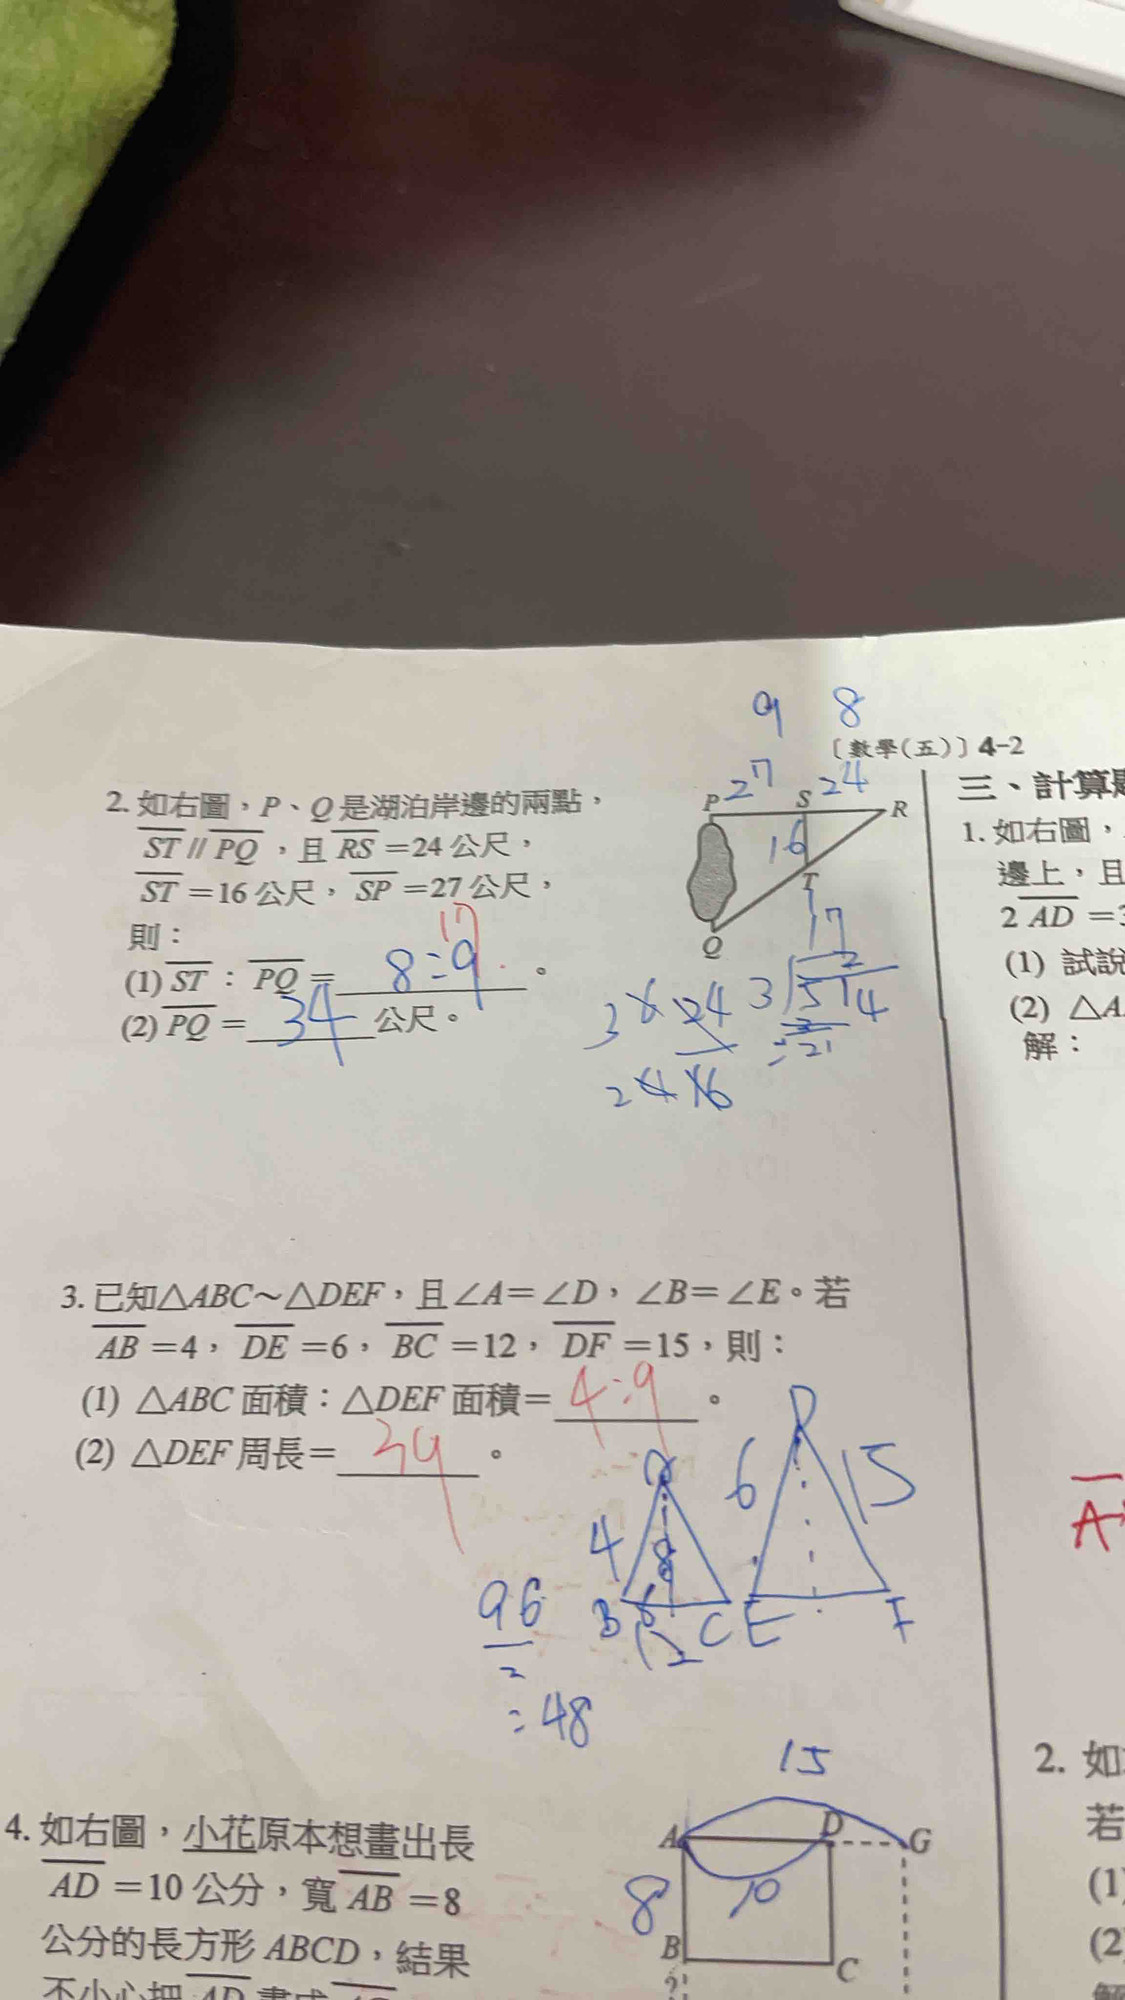 9 8
〔數學(五)〕4-2
2. 如右圖，P、Q 是湖泊岸邊的兩點，
ST // PQ，且 RS =24 公尺，
ST =16 公尺，SP =27 公尺，
則：
(1) ST : PQ = 8:9 17 。
(2) PQ = 34 公尺。
P 27 S 24 R
16
T
Q
17
3 514
21
24 16
三、計算題
1. 如右圖，
邊上，且
2 AD =3
(1) 試說
(2) △A
解：
3. 已知△ABC～△DEF，且∠A=∠D，∠B=∠E。若
AB =4，DE =6，BC =12，DF =15，則：
(1) △ABC 面積：△DEF 面積= 4:9 。
(2) △DEF 周長= 39 。
D
6 15
4 8
B 6 C E F
12
96
2
=48
A
15
4. 如右圖，小花原本想畫出長
AD =10 公分，寬 AB =8
公分的長方形 ABCD，結果
不小心把 AD 畫成
A D G
8 10
B C
?
2. 如
若
(1)
(2)
解